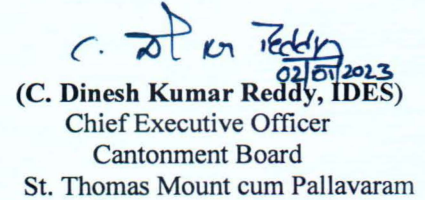 C. Reddy
02/01/2023
(C. Dinesh Kumar Reddy, IDES)
Chief Executive Officer
Cantonment Board
St. Thomas Mount cum Pallavaram